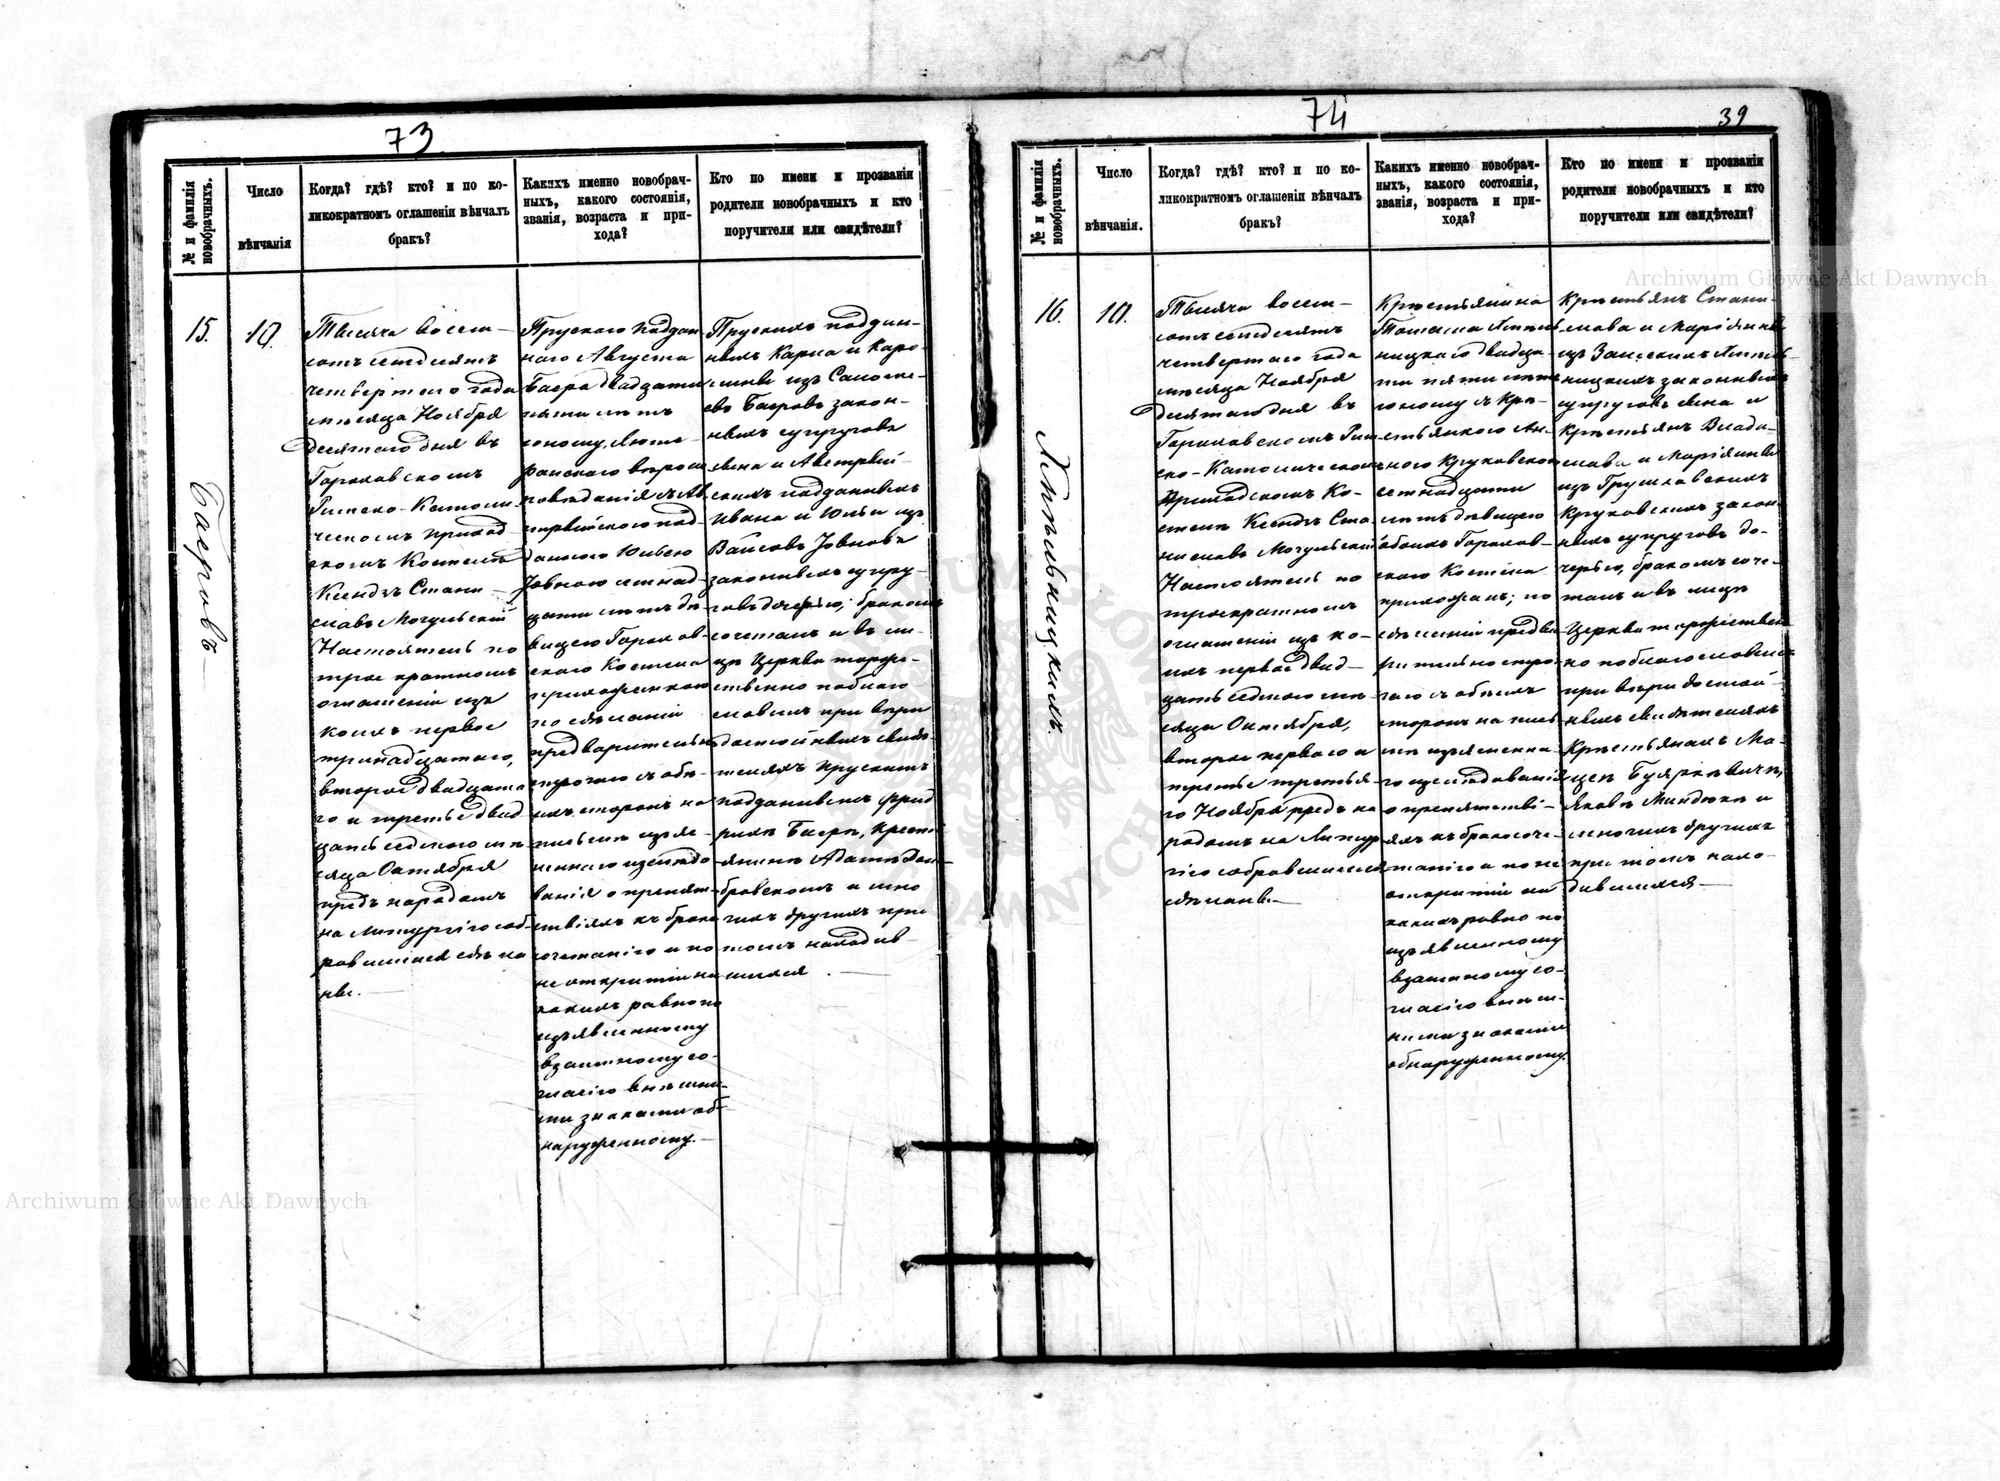 73
№ и фамилія новобрачныхъ.
Число вѣнчанія
Когда? гдѣ? кто? и по ко-
ликократномъ оглашеніи вѣнчалъ
бракъ?
Какихъ именно новобрач-
ныхъ, какого состоянія,
званія, возраста и при-
хода?
Кто по имени и прозваніи
родители новобрачныхъ и кто
поручители или свидѣтели?
15.
Баеровъ
10.
Тысяча восем-
сотъ семдесятъ
четвертого года
мѣсяца Ноября
десятого дня въ
Гороховскомъ
Римско-Католи
ческомъ приход
скомъ Костелѣ
Ксендзъ Стани-
славъ Могульскій
Настоятель по
трое кратномъ
оглашеніи изъ
коихъ первое
тринадцатаго,
второе двадцата
го и третье двад
цать седмого мѣ
сяца Октября
предъ народомъ
на Литургію соб-
равшимся сдѣла
ны.
Прускаго поддан
наго Августа
Баера двадцати
пяти лѣтъ
юношу, Люте-
ранскаго вѣроис
повѣданія съ Ав
стрійского под-
данного Юлією
Зовною семнад-
цати лѣтъ дѣ-
вицею Горохов-
ского Костела
прихожанкою
по сдѣланіи
предварительн
строгаго съ обѣ-
ихъ сторонъ на
письмѣ изъяс-
неннаго изслѣдо
ванія о препят-
ствіяхъ къ брако
сочетанію и по
не открытіи ни
какихъ равно по
изъявленному
взаимному со-
гласію внѣшни-
ми знаками об-
наруженному.
Прускихъ поддан-
ныхъ Карла и Каро-
лины изъ
Баеровъ закон-
ныхъ супруговъ
сына и Австрій-
скихъ подданныхъ
Ивана и Юльи изъ
Вайсовъ Зовновъ
законныхъ супру-
говъ дочерью; бракомъ
сочеталъ и въ ли-
цѣ Церкви торже-
ственно поблаго-
словилъ при вѣри
достойныхъ свидѣ-
теляхъ Прускимъ
подданнымъ Фрид
рихѣ Баерѣ, крестъ
янинѣ Адамѣ Дом-
бровскомъ и мно
гихъ другихъ при
томъ находив-
шихся.
74
39
№ и фамилія новобрачныхъ.
Число вѣнчанія.
Когда? гдѣ? кто? и по ко-
ликократномъ оглашеніи вѣнчалъ
бракъ?
Какихъ именно новобрач-
ныхъ, какого состоянія,
званія, возраста и при-
хода?
Кто по имени и прозваніи
родители новобрачныхъ и кто
поручители или свидѣтели?
16.
10.
Тысяча восем-
сотъ семдесятъ
четвертаго года
мѣсяца Ноября
десятаго дня въ
Гороховскомъ Рим
ско-Католическомъ
Приходскомъ Ко-
стелѣ Ксендзъ Ста
ниславъ Могульскій
Настоятель по
троекратномъ
оглашеніи изъ ко-
ихъ первое двад-
цать седмого мѣ
сяца Октября,
второе первого а
третье третья-
го Ноября предъ на
родомъ на Литур
гію собравшимся
сдѣланы.
Крестьянина
двадца-
ти пяти лѣтъ
юношу съ Кре-
стьянкою Ан-
ною Круковскою
семнадцати
лѣтъ дѣвицею
обоихъ Горохов-
ского Костела
прихожанъ; по
сдѣланіи предва
рительно стро-
гаго съ обѣихъ
сторонъ на пись
мѣ изъясненна-
го изслѣдованія
о препятстві-
яхъ къ бракосоче-
танію и по не
открытіи ни
какихъ равно по
изъявленному
взаимному со-
гласію внѣш-
ними знаками
обнаруженному.
Крестьянъ Стани-
слава и Маріянны
изъ
законныхъ
супруговъ сына и
Крестьянъ Влади-
слава и Маріянны
изъ Грушковскихъ
Круковскихъ закон
ныхъ супруговъ до-
черью, бракомъ соче-
талъ и въ лицѣ
Церкви торжествен
но поблагословилъ
при вѣри достой-
ныхъ свидѣтеляхъ
Крестьянахъ Ма-
цеѣ
Яковѣ и
многихъ другихъ
при томъ нахо-
дившихся
Archiwum Główne Akt Dawnych
Archiwum Główne Akt Dawnych